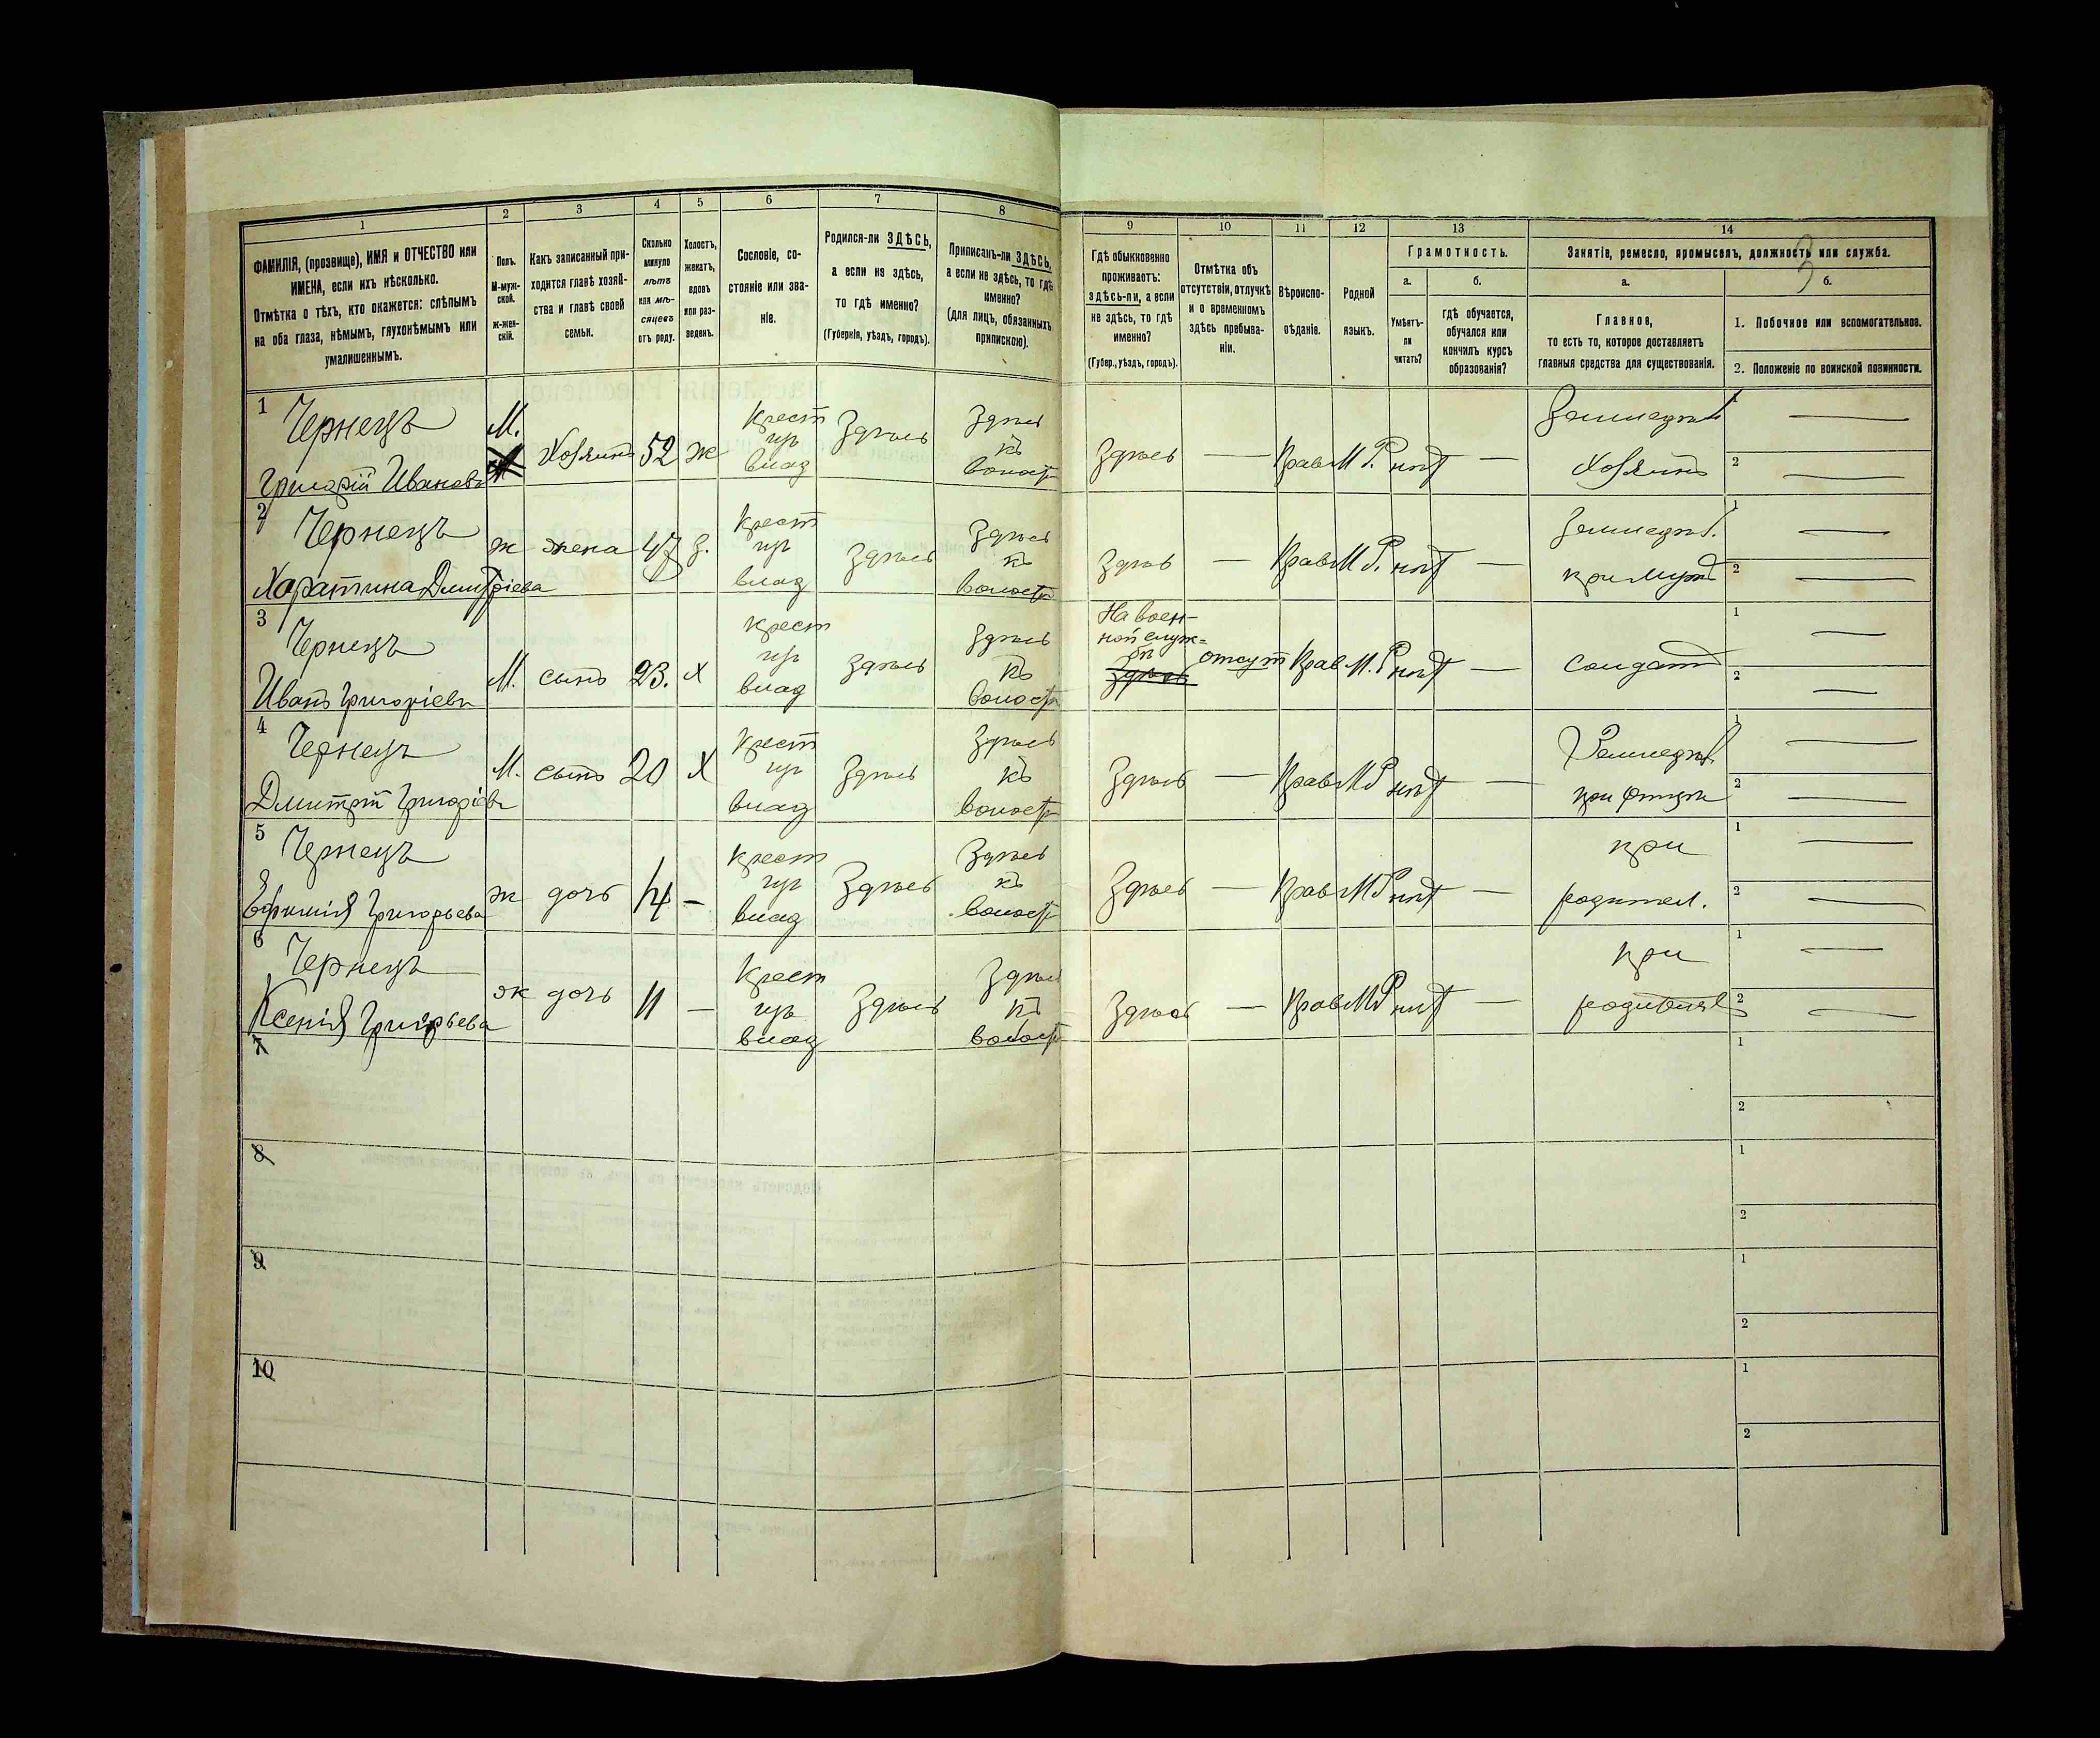 1
2
3
4
5
6
7
8
ФАМИЛІЯ, (прозвище), ИМЯ и ОТЧЕСТВО или
ИМЕНА, если ихъ нѣсколько.
Отмѣтка о тѣхъ, кто окажется: слѣпымъ
на оба глаза, нѣмымъ, глухонѣмымъ или
умалишеннымъ.
Полъ.
М-муж-
ской.
ж-жен-
скій.
Какъ записанный при-
ходится главѣ хозяй-
ства и главѣ своей
семьи.
Сколько
минуло
лѣтъ
или мѣ-
сяцевъ
отъ роду.
Холостъ,
женатъ,
вдовъ
или раз-
веденъ.
Сословіе, со-
стояніе или зва-
ніе.
Родился-ли ЗДѢСЬ,
а если не здѣсь,
то гдѣ именно?
(Губернія, уѣздъ, городъ).
Приписанъ-ли ЗДѢСЬ,
а если не здѣсь, то гдѣ
именно?
(для лицъ, обязанныхъ
припискою).
9
10
11
12
13
14
Гдѣ обыкновенно
проживаетъ:
здѣсь-ли, а если
не здѣсь, то гдѣ
именно?
(Губер., уѣздъ, городъ).
Отмѣтка объ
отсутствіи, отлучкѣ
и о временномъ
здѣсь пребыва-
ніи.
Вѣроиспо-
вѣданіе.
Родной
языкъ.
Грамотность.
а.
Умѣетъ-
ли
читать?
б.
гдѣ обучается,
обучался или
кончилъ курсъ
образованія?
Занятіе, ремесло, промыселъ, должность или служба.
3
а.
Главное,
то есть то, которое доставляетъ
главныя средства для существованія.
б.
1. Побочное или вспомогательное.
2. Положеніе по воинской повинности.
1
Чернецъ
Григорій Ивановъ
М.
Хозяинъ
52
ж
Крест
изъ
влад
Здѣсь
Здѣсь
къ
волости
Здѣсь
—
Прав
М Р.
нѣт
—
Земледѣл
Хозяинъ
1 —
2 —
2
Чернецъ
Харатина Дмитріева
ж
жена
47
з.
Крест
изъ
влад
Здѣсь
Здѣсь
къ
волости
Здѣсь
—
Прав
М Р.
нѣт
—
Земледѣл.
при мужѣ
1 —
2 —
3
Чернецъ
Иванъ Григоріевъ
М.
сынъ
23.
х
Крест
изъ
влад
Здѣсь
Здѣсь
къ
волости
На воен-
ной служ-
бѣ
Здѣсь
отсут
Прав
М. Р
нѣт
—
солдат
1 —
2 —
4
Чернецъ
Дмитрій Григоріевъ
М.
сынъ
20
Х
Крест
изъ
влад
Здѣсь
Здѣсь
къ
волости
Здѣсь
—
Прав
М Р
нѣт
—
Земледѣл
при отцѣ
1 —
2 —
5
Чернецъ
Ефимія Григорьева
ж
дочь
14
—
Крест
изъ
влад
Здѣсь
Здѣсь
къ
волости
Здѣсь
—
Прав
М Р
нѣт
—
при
родител.
1 —
2 —
6
Чернецъ
Ксенія Григорьева
ж
дочь
11
—
Крест
изъ
влад
Здѣсь
Здѣсь
къ
волости
Здѣсь
—
Прав
М Р
нѣт
—
при
1 —
2 —
7
1
2
8
1
2
9
1
2
10
1
2